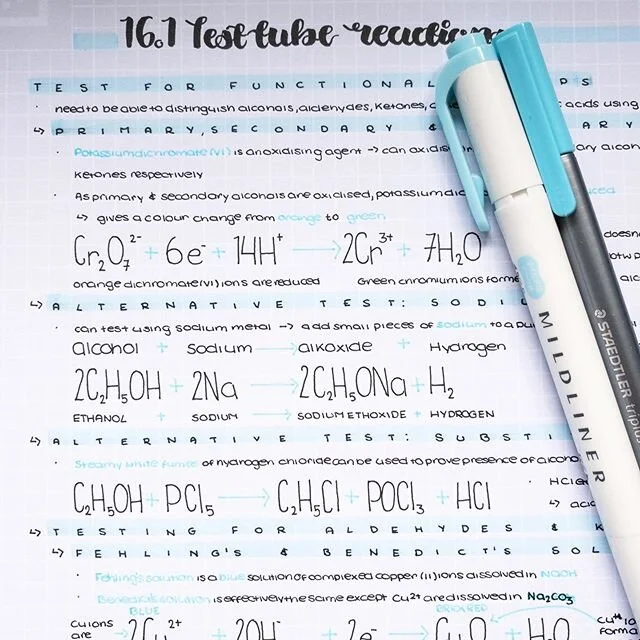 16.1 Test-tube reactions
TEST FOR FUNCTIONAL PS
· need to be able to distinguish alcohols, aldehydes, ketones, acids using
↳ PRIMARY, SECONDARY & ARY
· Potassium dichromate (VI) is an oxidising agent → can oxidis ary alcoh
ketones respectively
· As primary & secondary alcohols are oxidised, potassium dic uced
↳ gives a colour change from orange to green
Cr₂O₇²⁻ + 6e⁻ + 14H⁺ → 2Cr³⁺ + 7H₂O
doesn
orange dichromate (VI) ions are reduced Green chromium ions forme
↳ ALTERNATIVE TEST: SODIU
· can test using sodium metal → add small pieces of sodium to a pu
alcohol + sodium → alkoxide + Hydrogen
2C₂H₅OH + 2Na → 2C₂H₅ONa + H₂
ETHANOL + SODIUM → SODIUM ETHOXIDE + HYDROGEN
↳ ALTERNATIVE TEST: SUBSTI
· Steamy white fumes of hydrogen chloride can be used to prove presence of alcoho
C₂H₅OH + PCl₅ → C₂H₅Cl + POCl₃ + HCl
· HCl
↳ acid
↳ TESTING FOR ALDEHYDES & K
↳ FEHLING'S & BENEDICT'S SOL
· Fehling's solution is a blue solution of complexed copper (II) ions dissolved in NaOH
· Benedict's solution is effectively the same except Cu²⁺ are dissolved in Na₂CO₃
BLUE BRICK RED
Cu ions
are
2Cu²⁺ + 2OH⁻ + 2e⁻ → Cu₂O + H₂O
forma
MILDLINER
STAEDTLER triplus